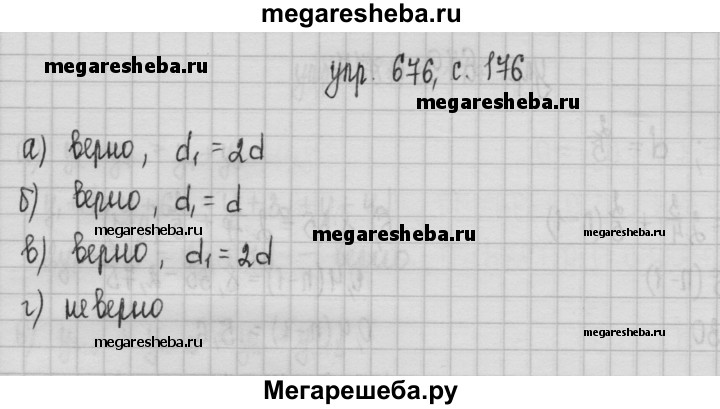 megaresheba.ru
megaresheba.ru
упр. 676, с. 176
megaresheba.ru
а) верно, d₁ = 2d
б) верно, d₁ = d
megaresheba.ru
megaresheba.ru
в) верно, d₁ = 2d
megaresheba.ru
г) неверно
megaresheba.ru
megaresheba.ru
Мегарешеба.ру